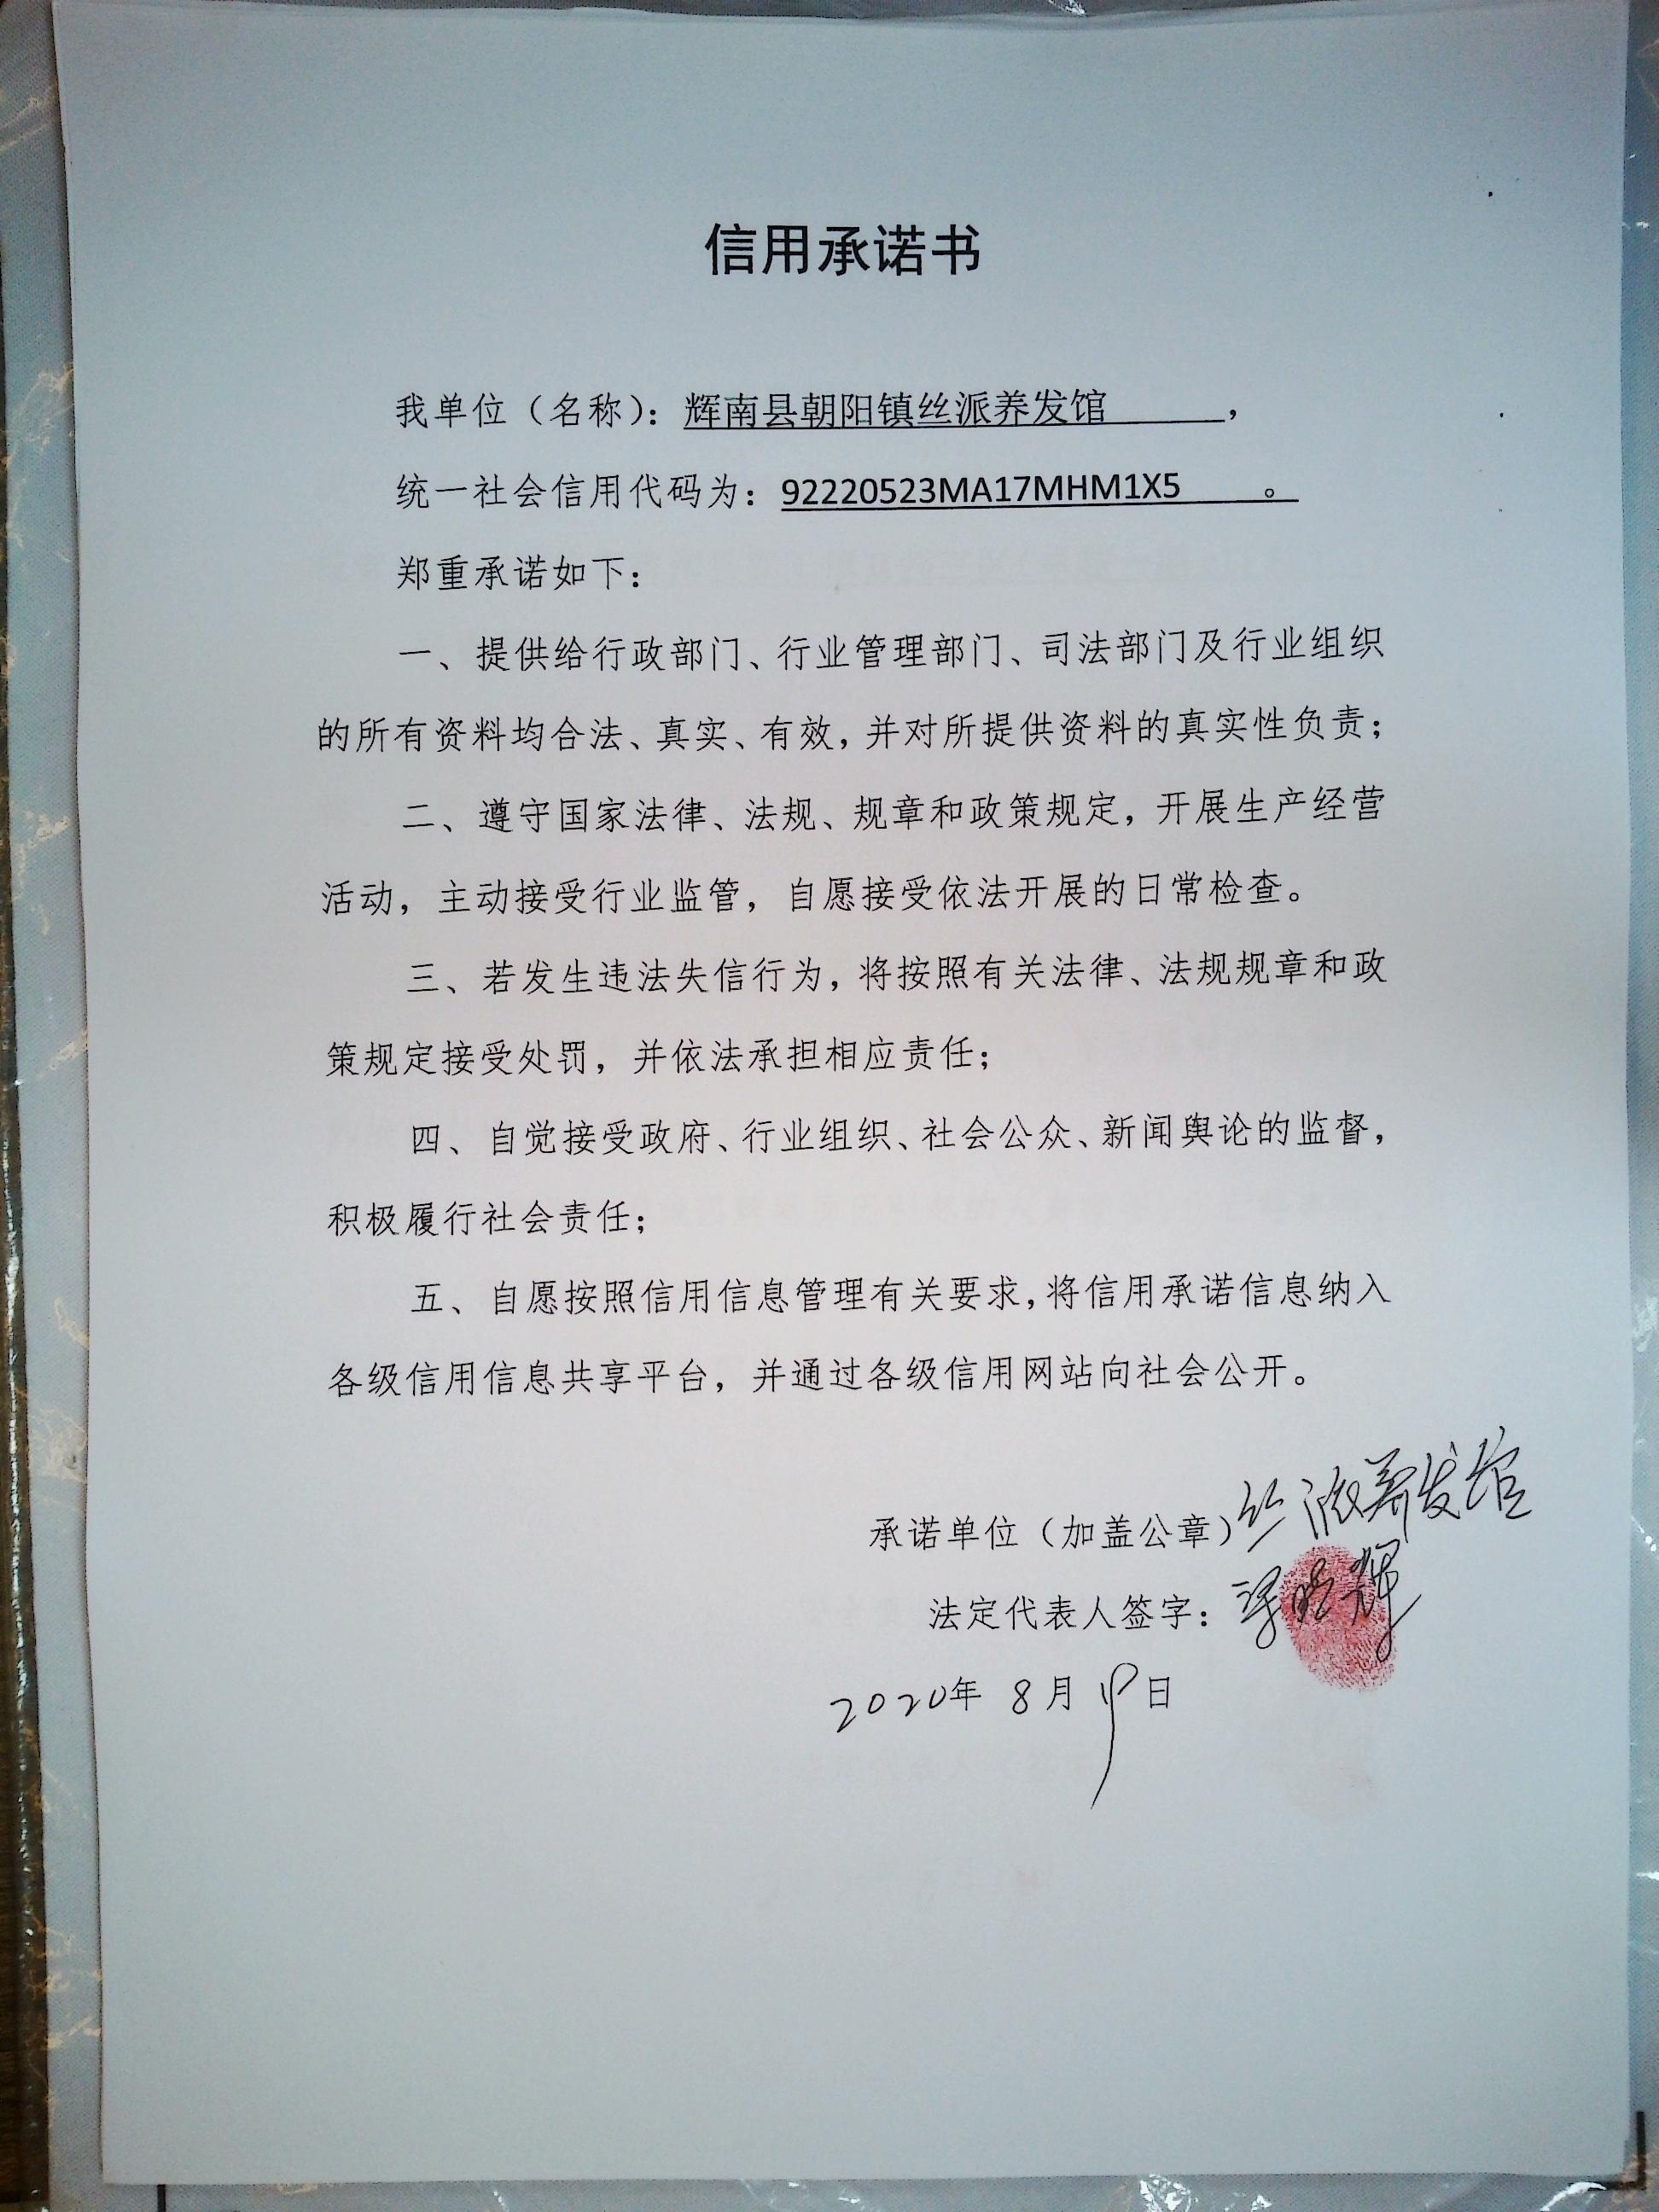 信用承诺书
我单位（名称）：辉南县朝阳镇丝派养发馆，
统一社会信用代码为：92220523MA17MHM1X5。
郑重承诺如下：
一、提供给行政部门、行业管理部门、司法部门及行业组织
的所有资料均合法、真实、有效，并对所提供资料的真实性负责；
二、遵守国家法律、法规、规章和政策规定，开展生产经营
活动，主动接受行业监管，自愿接受依法开展的日常检查。
三、若发生违法失信行为，将按照有关法律、法规规章和政
策规定接受处罚，并依法承担相应责任；
四、自觉接受政府、行业组织、社会公众、新闻舆论的监督，
积极履行社会责任；
五、自愿按照信用信息管理有关要求，将信用承诺信息纳入
各级信用信息共享平台，并通过各级信用网站向社会公开。
承诺单位（加盖公章）丝派养发馆
法定代表人签字：
2020年 8月 19日